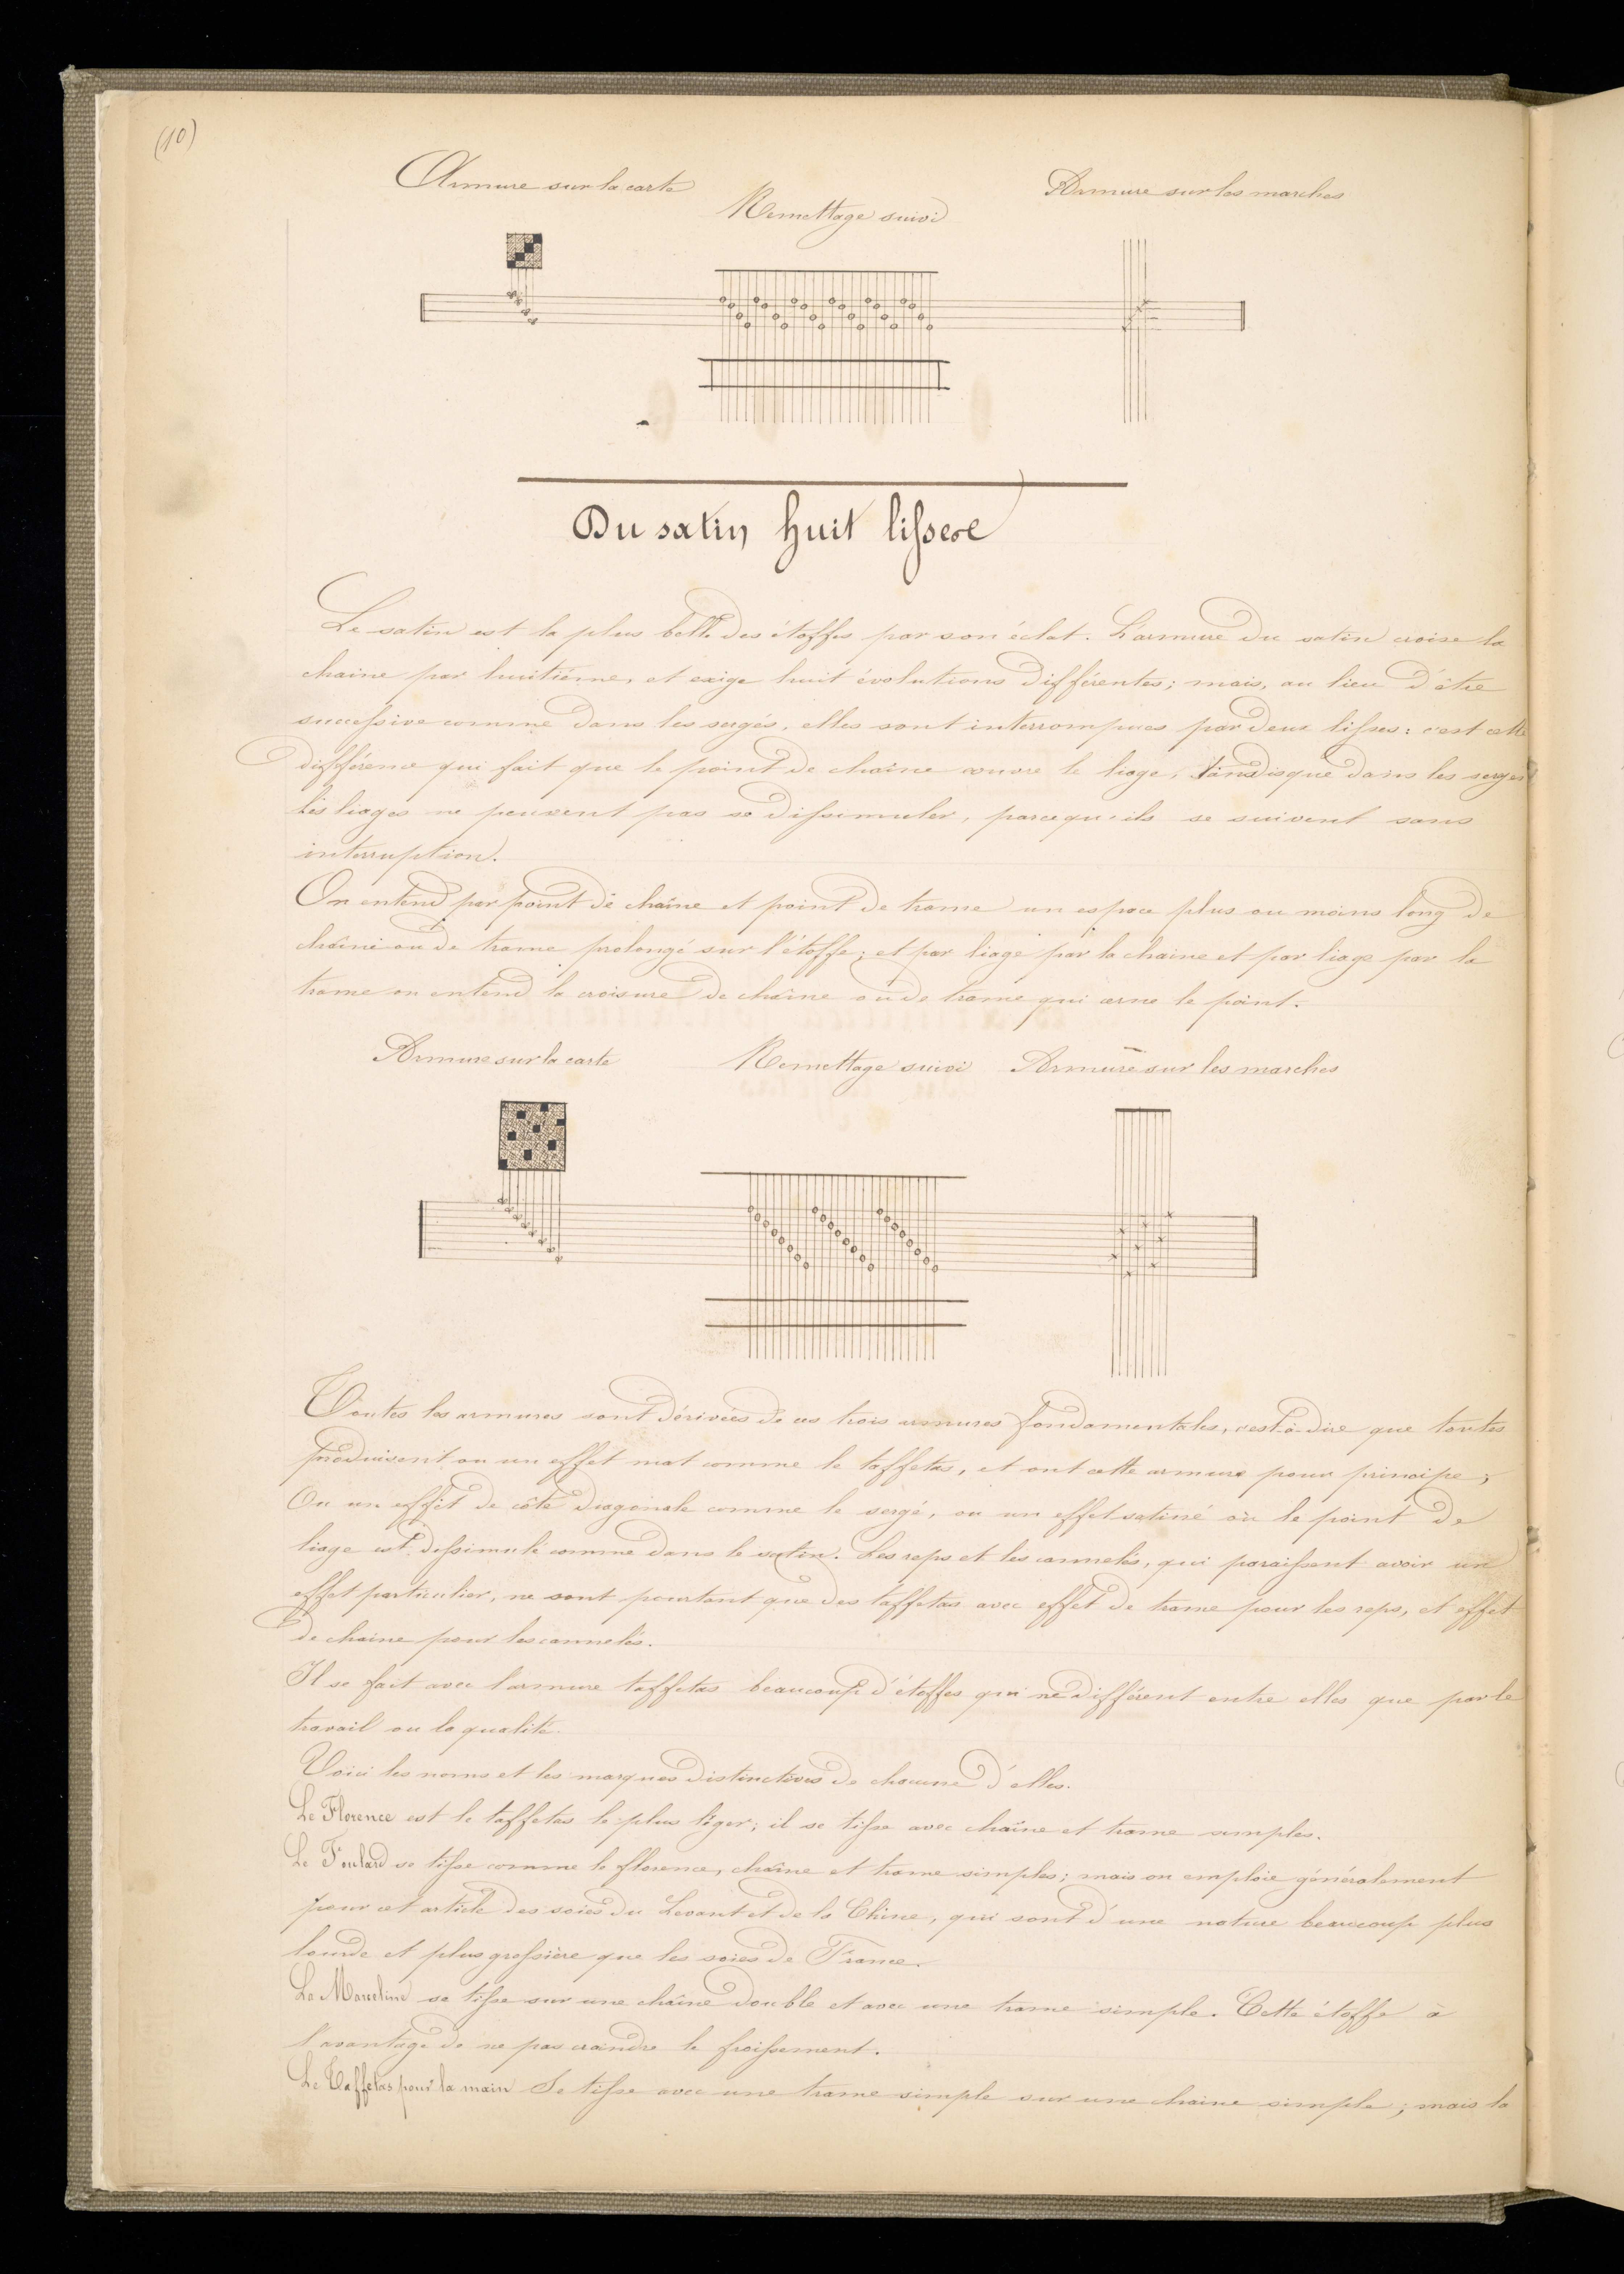 (10)
Armure sur la carte
Remettage suivi
Armure sur les marches
Du satin huit lisses
Le satin est la plus belle des étoffes par son éclat. L'armure du satin croise la
chaine par huitième, et exige huit évolutions différentes; mais, au lieu d'être
successive comme dans les sergés, elles sont interrompues par deux lisses: c'est cette
différence qui fait que le point de chaine couvre le liage, tandisque dans les serges
les liages ne peuvent pas se dissimuler, parcequ'ils se suivent sans
interruption.
On entend par point de chaîne et point de trame un espace plus ou moins long de
chaîne ou de trame prolongé sur l'étoffe; et par liage par la chaine et par liage par la
trame on entend la croisure de chaîne ou de trame qui arne le point.
Armure sur la carte
Remettage suivi
Armure sur les marches
Toutes les armures sont dérivées de ces trois armures fondamentales, c'est-à-dire que toutes
produisent ou un effet mat comme le taffetas, et ont cette armure pour principe;
Ou un effet de côte diagonale comme le sergé, ou un effet satiné où le point de
liage est dissimulé comme dans le satin. Les reps et les cannelés, qui paraissent avoir un
effet particulier, ne sont pourtant que des taffetas avec effet de trame pour les reps, et effet
de chaine pour les cannelés.
Il se fait avec l'armure taffetas beaucoup d'étoffes qui ne diffèrent entre elles que par le
travail ou la qualité.
Voici les noms et les marques distinctives de chacune d'elles.
Le Florence est le taffetas le plus léger; il se tisse avec chaîne et trame simples.
Le Foulard se tisse comme le florence, chaîne et trame simples; mais on emploie généralement
pour cet article des soies du Levant et de la Chine, qui sont d'une nature beaucoup plus
lourde et plus grossière que les soies de France.
La Marceline se tisse sur une chaîne double et avec une trame simple. Cette étoffe à
l'avantage de ne pas craindre le froissement.
Le Taffetas pour la main Se tisse avec une trame simple sur une chaine simple; mais la